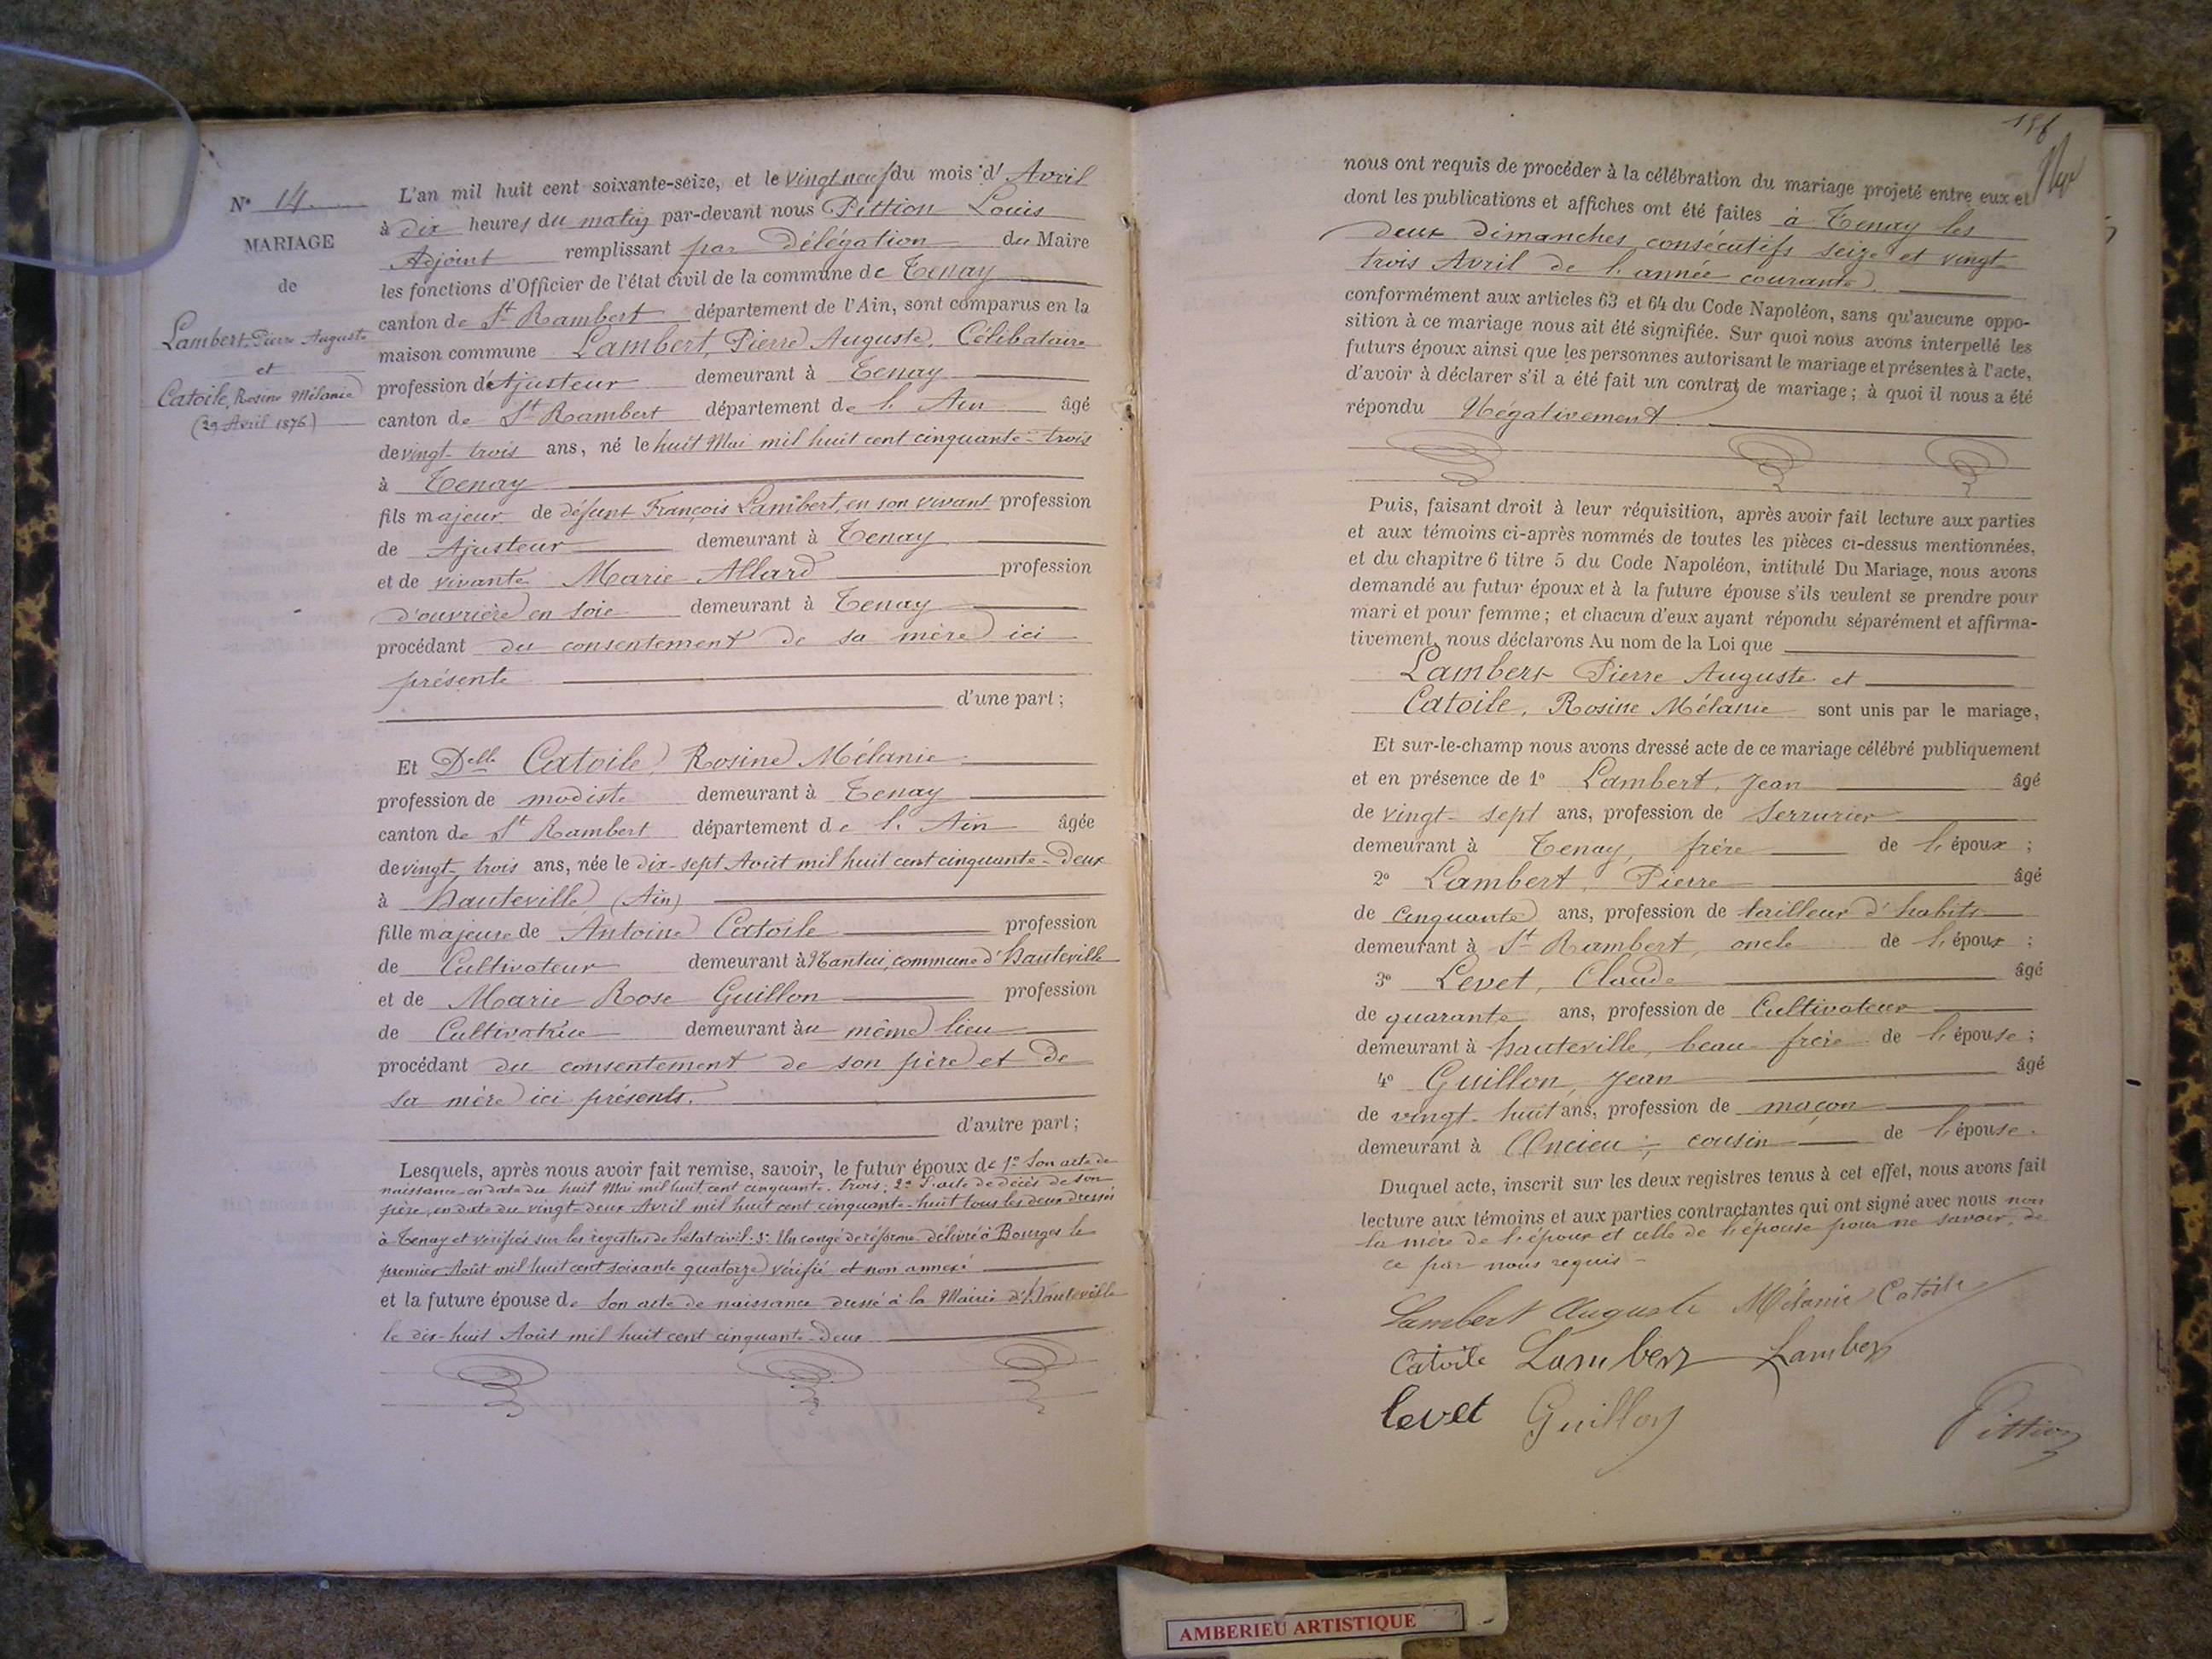 N° 14
MARIAGE
de
Lambert Pierre Auguste
et
Catoile, Rosine Mélanie
(29 Avril 1876)
L'an mil huit cent soixante-seize, et le vingt neuf du mois d'Avril
à dix heures du matin par-devant nous Pittion Louis
Adjoint remplissant par Délégation du Maire
les fonctions d'Officier de l'état civil de la commune de Tenay
canton de St Rambert département de l'Ain, sont comparus en la
maison commune Lambert, Pierre Auguste, Célibataire
profession d'Ajusteur demeurant à Tenay
canton de St Rambert département de l'Ain âgé
de vingt-trois ans, né le huit Mai mil huit cent cinquante-trois
à Tenay
fils majeur de défunt François Lambert, en son vivant profession
de Ajusteur demeurant à Tenay
et de vivante Marie Allard profession
d'ouvrière en soie demeurant à Tenay
procédant du consentement de sa mère ici
présente
d'une part ;
Et Delle Catoile, Rosine Mélanie
profession de modiste demeurant à Tenay
canton de St Rambert département de l'Ain âgée
de vingt-trois ans, née le dix-sept Août mil huit cent cinquante-deux
à Hauteville (Ain)
fille majeure de Antoine Catoile profession
de Cultivateur demeurant à Nantui, commune d'Hauteville
et de Marie Rose Guillon profession
de Cultivatrice demeurant au même lieu
procédant du consentement de son père et de
sa mère ici présents.
d'autre part ;
Lesquels, après nous avoir fait remise, savoir, le futur époux de 1° Son acte de
naissance en date du huit Mai mil huit cent cinquante-trois; 2° l'acte de décès de son
père, en date du vingt-deux Avril mil huit cent cinquante-huit tous les deux dressés
à Tenay et vérifiés sur les registres de l'état civil. 3° Un congé de réforme délivré à Bourges le
premier Août mil huit cent soixante quatorze vérifié et non annexé
et la future épouse de Son acte de naissance dressé à la Mairie d'Hauteville
le dix-huit Août mil huit cent cinquante-deux
nous ont requis de procéder à la célébration du mariage projeté entre eux et
dont les publications et affiches ont été faites à Tenay les
deux Dimanches consécutifs seize et vingt-
trois Avril de l'année courante.
conformément aux articles 63 et 64 du Code Napoléon, sans qu'aucune oppo-
sition à ce mariage nous ait été signifiée. Sur quoi nous avons interpellé les
futurs époux ainsi que les personnes autorisant le mariage et présentes à l'acte,
d'avoir à déclarer s'il a été fait un contrat de mariage ; à quoi il nous a été
répondu Négativement
Puis, faisant droit à leur réquisition, après avoir fait lecture aux parties
et aux témoins ci-après nommés de toutes les pièces ci-dessus mentionnées,
et du chapitre 6 titre 5 du Code Napoléon, intitulé Du Mariage, nous avons
demandé au futur époux et à la future épouse s'ils veulent se prendre pour
mari et pour femme ; et chacun d'eux ayant répondu séparément et affirma-
tivement, nous déclarons Au nom de la Loi que
Lambert Pierre Auguste et
Catoile, Rosine Mélanie sont unis par le mariage,
Et sur-le-champ nous avons dressé acte de ce mariage célébré publiquement
et en présence de 1° Lambert, Jean âgé
de vingt-sept ans, profession de Serrurier
demeurant à Tenay, frère de l'époux ;
2° Lambert, Pierre âgé
de Cinquante ans, profession de tailleur d'habits
demeurant à St Rambert, oncle de l'époux ;
3° Levet, Claude âgé
de quarante ans, profession de Cultivateur
demeurant à Hauteville, beau-frère de l'épouse ;
4° Guillon, Jean âgé
de vingt-huit ans, profession de maçon
demeurant à cousin de l'épouse.
Duquel acte, inscrit sur les deux registres tenus à cet effet, nous avons fait
lecture aux témoins et aux parties contractantes qui ont signé avec nous non
la mère de l'époux et celle de l'épouse pour ne savoir, de
ce par nous requis
Lambert Auguste Mélanie Catoile
Catoile Lambert Lambert
levet Guillon
Pittion
AMBERIEU ARTISTIQUE